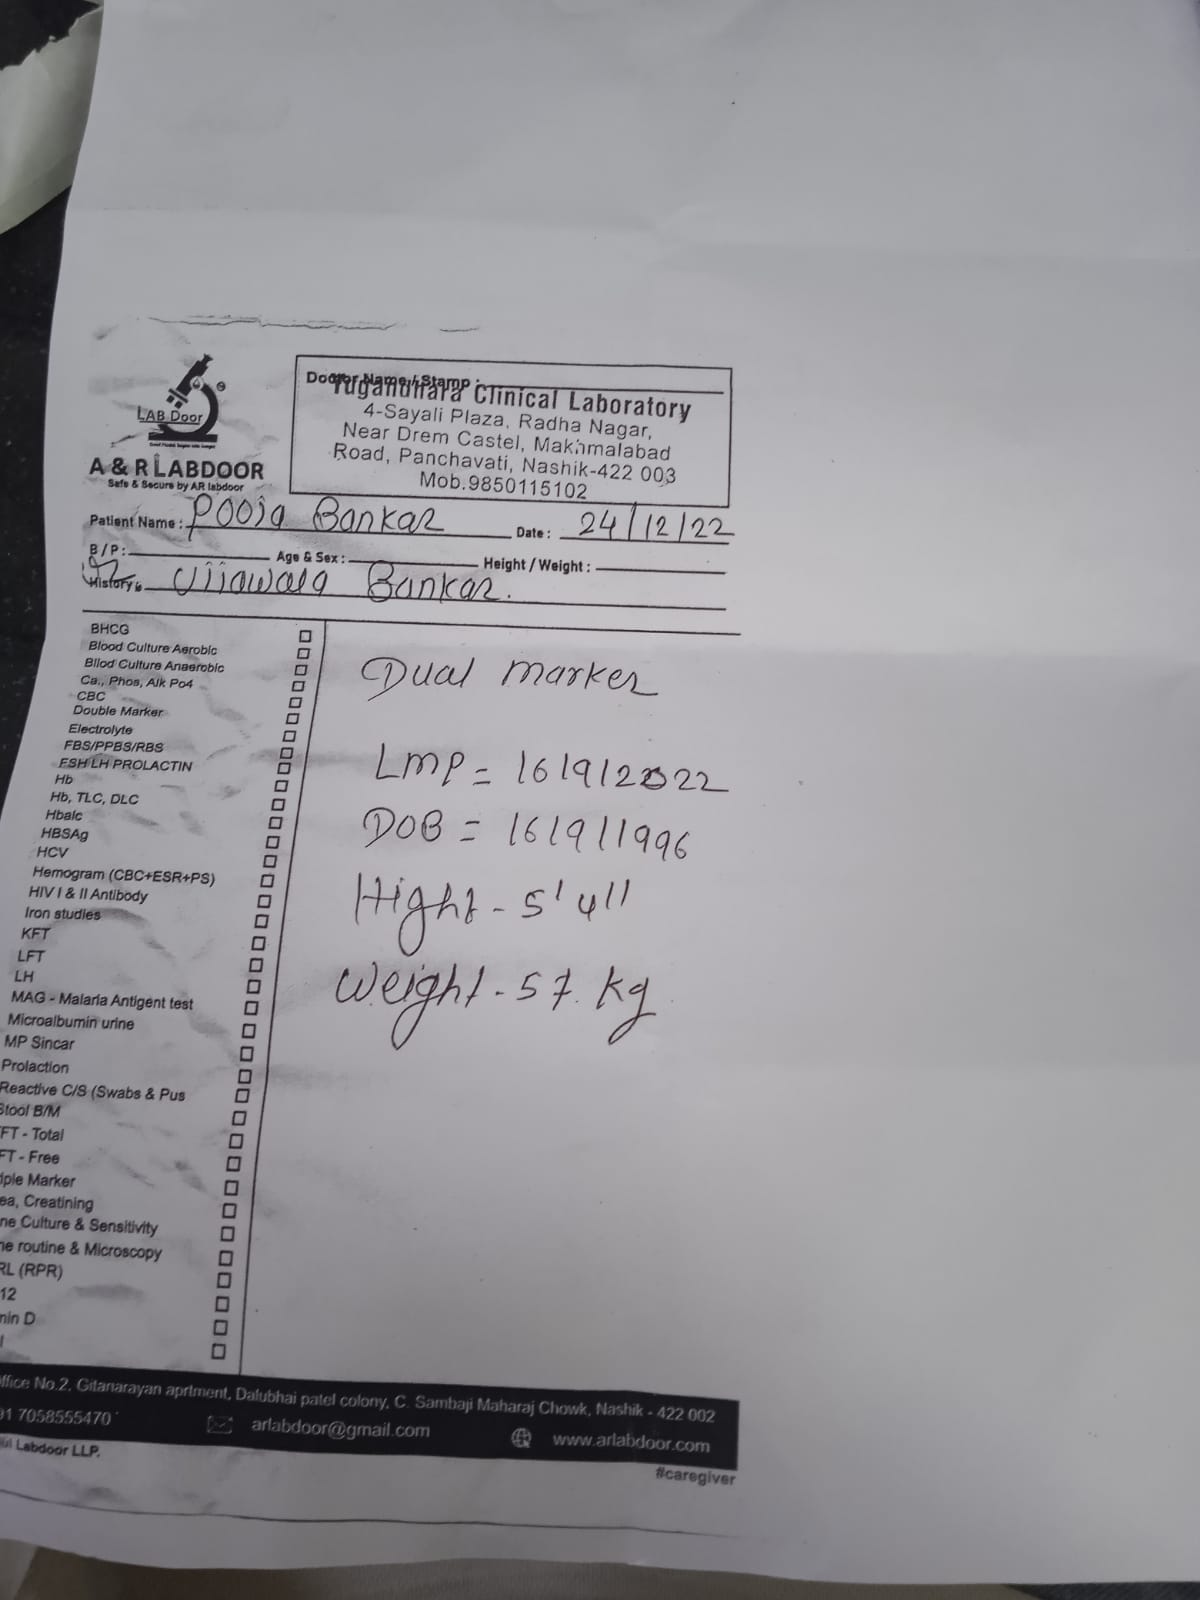 LAB Door
A & R LABDOOR
Safe & Secure by AR labdoor
Doctor Name / Stamp :
Yugandhara Clinical Laboratory
4-Sayali Plaza, Radha Nagar,
Near Drem Castel, Makhmalabad
Road, Panchavati, Nashik-422 003
Mob.9850115102
Patient Name : Pooja Bankar Date : 24/12/22
B / P : Age & Sex : Height / Weight :
History Ujjawala Bankar.
BHCG
Blood Culture Aerobic
Bllod Culture Anaerobic
Ca., Phos, Alk Po4
CBC
Double Marker
Electrolyte
FBS/PPBS/RBS
FSH LH PROLACTIN
Hb
Hb, TLC, DLC
Hbalc
HBSAg
HCV
Hemogram (CBC+ESR+PS)
HIV I & II Antibody
Iron studies
KFT
LFT
LH
MAG - Malaria Antigent test
Microalbumin urine
MP Sincar
Prolaction
Reactive C/S (Swabs & Pus
Stool B/M
FT - Total
FT - Free
iple Marker
ea, Creatining
ne Culture & Sensitivity
ne routine & Microscopy
RL (RPR)
12
min D
Dual marker
LMP = 16/9/2022
DOB = 16/9/1996
Hight - 5'4"
Weight - 57. kg
ffice No.2, Gitanarayan aprtment, Dalubhai patel colony, C. Sambaji Maharaj Chowk, Nashik - 422 002
91 7058555470 arlabdoor@gmail.com www.arlabdoor.com
Labdoor LLP.
#caregiver